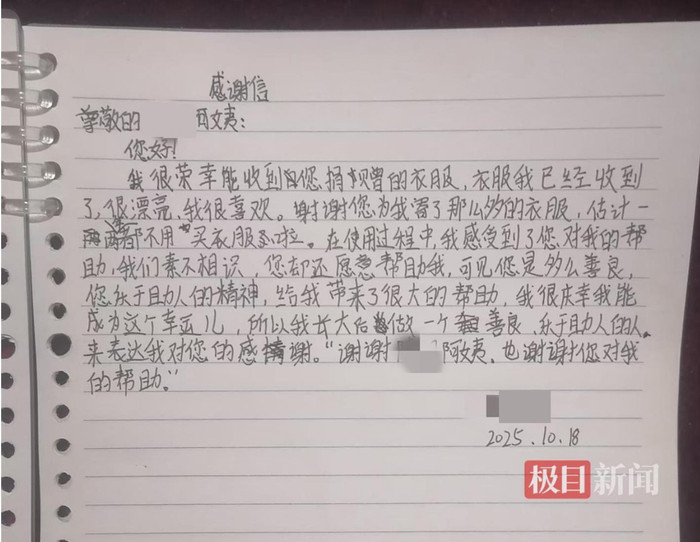 感谢信
尊敬的 阿姨:
您好!
我很荣幸能收到您捐赠的衣服,衣服我已经收到
了,很漂亮、我很喜欢。谢谢您为我寄了那么多的衣服,估计一
两年都不用买衣服啦。在使用过程中,我感受到了您对我的帮
助,我们素不相识,您却还愿意帮助我,可见您是多么善良,
您乐于助人的精神,给我带来了很大的帮助,我很庆幸我能
成为这个幸运儿,所以我长大后做一个善良,乐于助人的人.
来表达我对您的感谢。"谢谢 阿姨、也谢谢您对我
的帮助。"
2025.10.18
极目新闻